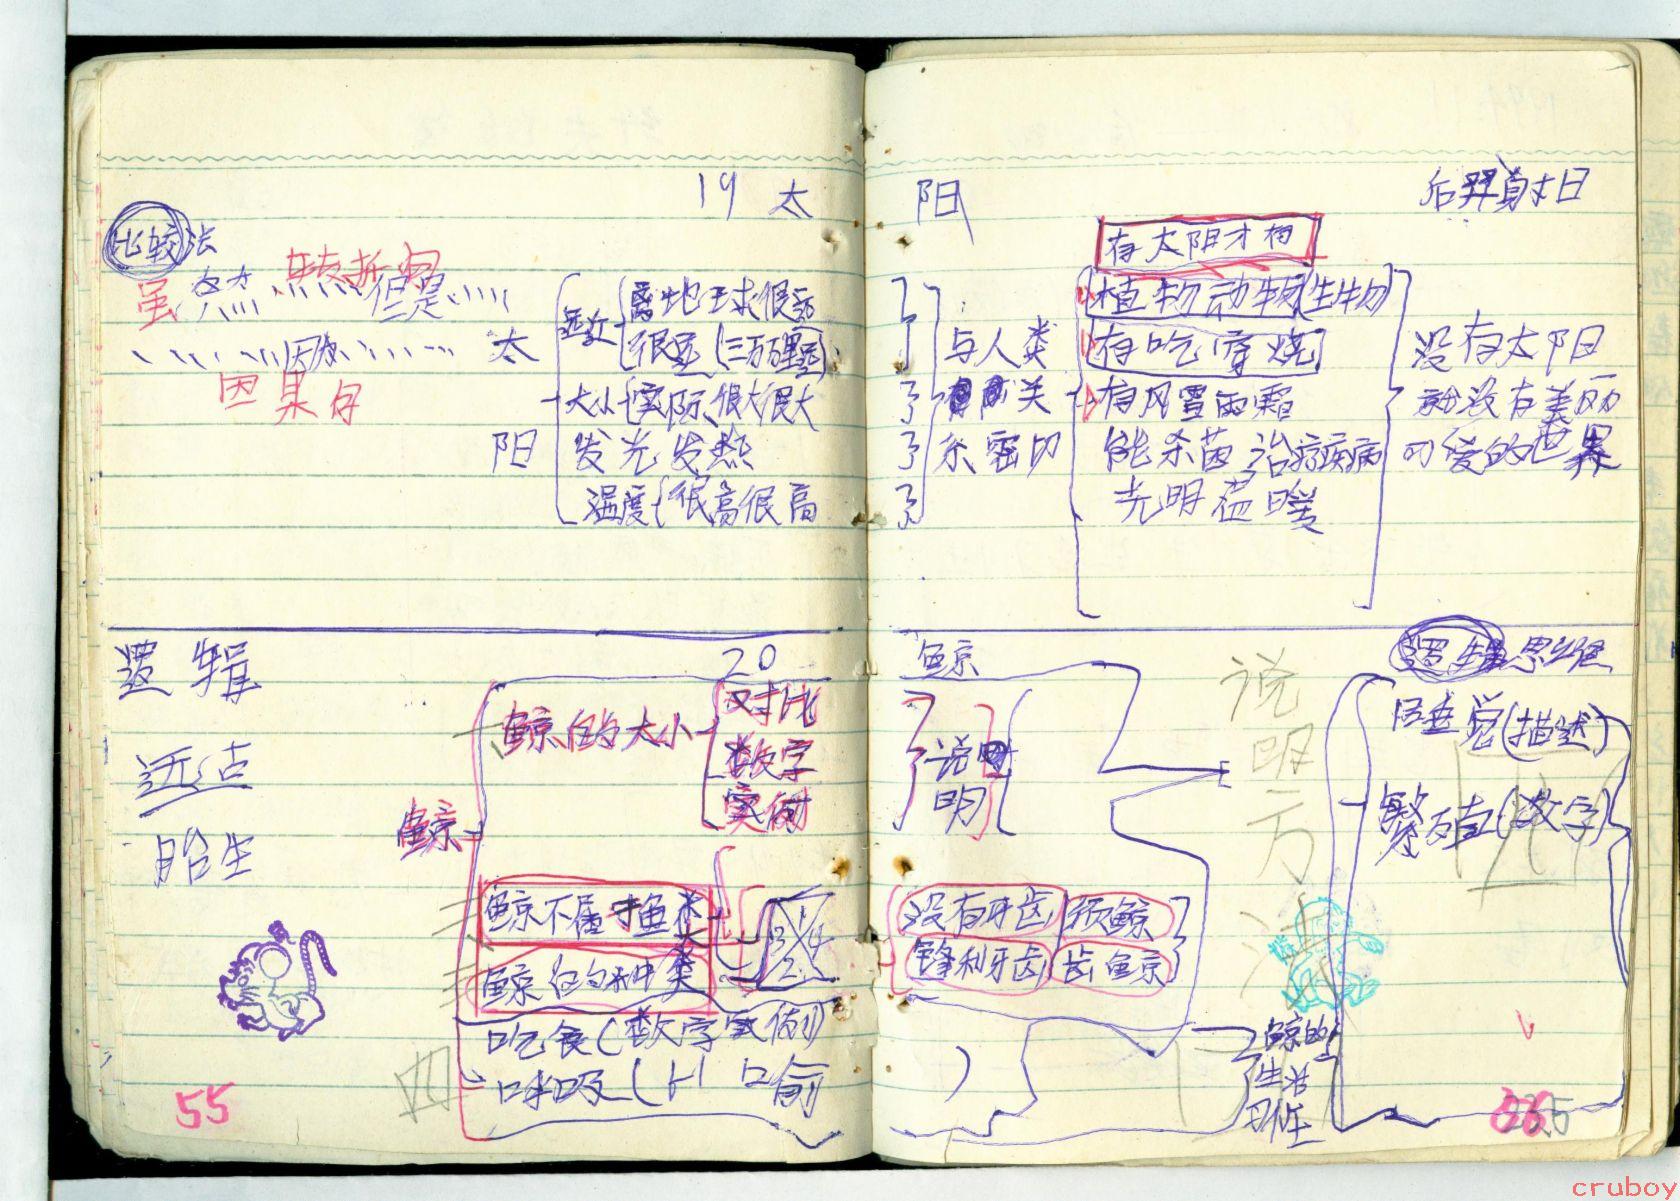 19 太阳
后羿射日
比较法
虽然……但是……
转折句
……因为……
因果句
太阳
远近 离地球很远
很远(三万万里远)
大小 实际 很大很大
发光发热
温度 很高很高
与人类
关
系密切
有太阳才有
植物动物(生物)
有吃穿烧
有风雪雨霜
能杀菌治疗疾病
光明温暖
没有太阳
就没有美丽
可爱的世界
逻辑
远古
胎生
55
20 鲸
鲸
鲸的大小
对比
数字
实例
说明
鲸不属于鱼类
鲸的种类
1 3 4 2
没有牙齿 须鲸
锋利牙齿 齿鲸
吃食(数字实例)
呼吸(比喻)
鲸的
生活
习性
说明方法
逻辑思维
睡觉(描述)
繁殖(数字)
四
cruboy